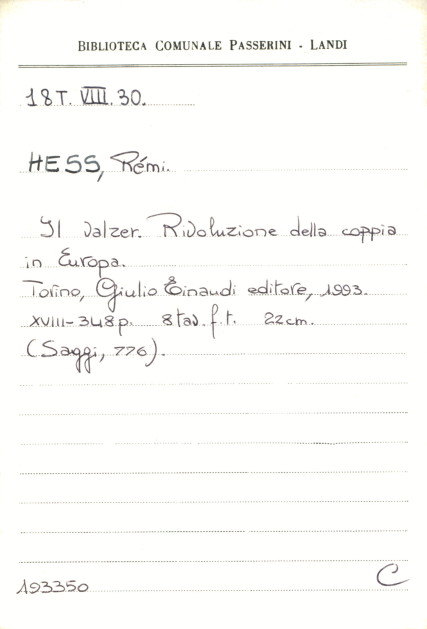 BIBLIOTECA COMUNALE PASSERINI - LANDI
18T. VIII. 30.
HESS, Rémi.
Il valzer. Rivoluzione della coppia
in Europa.
Torino, Giulio Einaudi editore, 1993.
XVIII-348p. 8 tav. f.t. 22cm.
(Saggi, 776).
193350
C